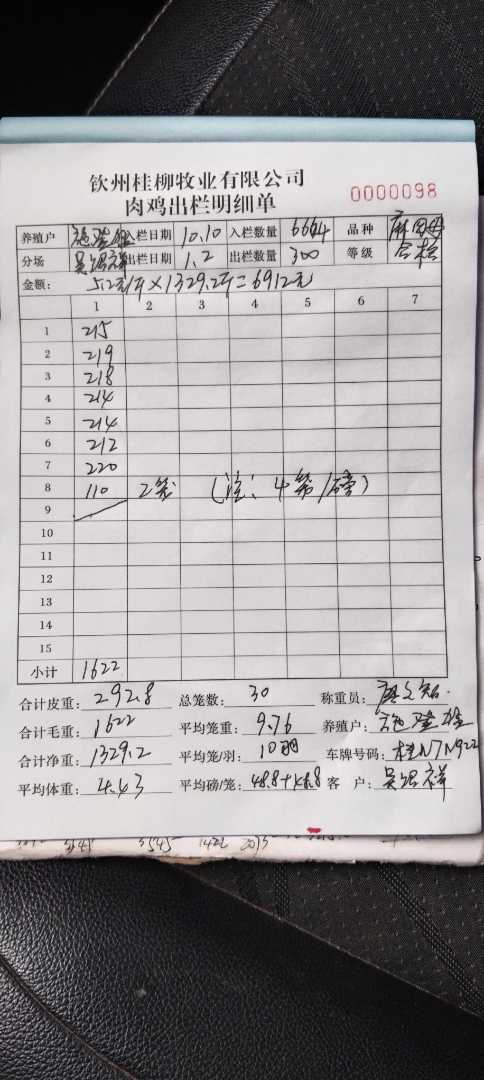 钦州桂柳牧业有限公司
肉鸡出栏明细单
0000098
养殖户 入栏日期 10.10 入栏数量 6664 品种
分场 吴绍祥 出栏日期 1.2 出栏数量 300 等级 合格
金额: 5.2元/斤×1329.2斤=6912元
1 2 3 4 5 6 7
1 215
2 219
3 218
4 214
5 214
6 212
7 220
8 110 2笼 (注: 4笼/磅)
9
10
11
12
13
14
15
小计 1622
合计皮重: 292.8 总笼数: 30 称重员:
合计毛重: 1622 平均笼重: 9.76 养殖户:
合计净重: 1329.2 平均笼/羽: 10羽 车牌号码: 桂N7N922
平均体重: 4.43 平均磅/笼: 客 户: 吴绍祥
3545 1422 2013